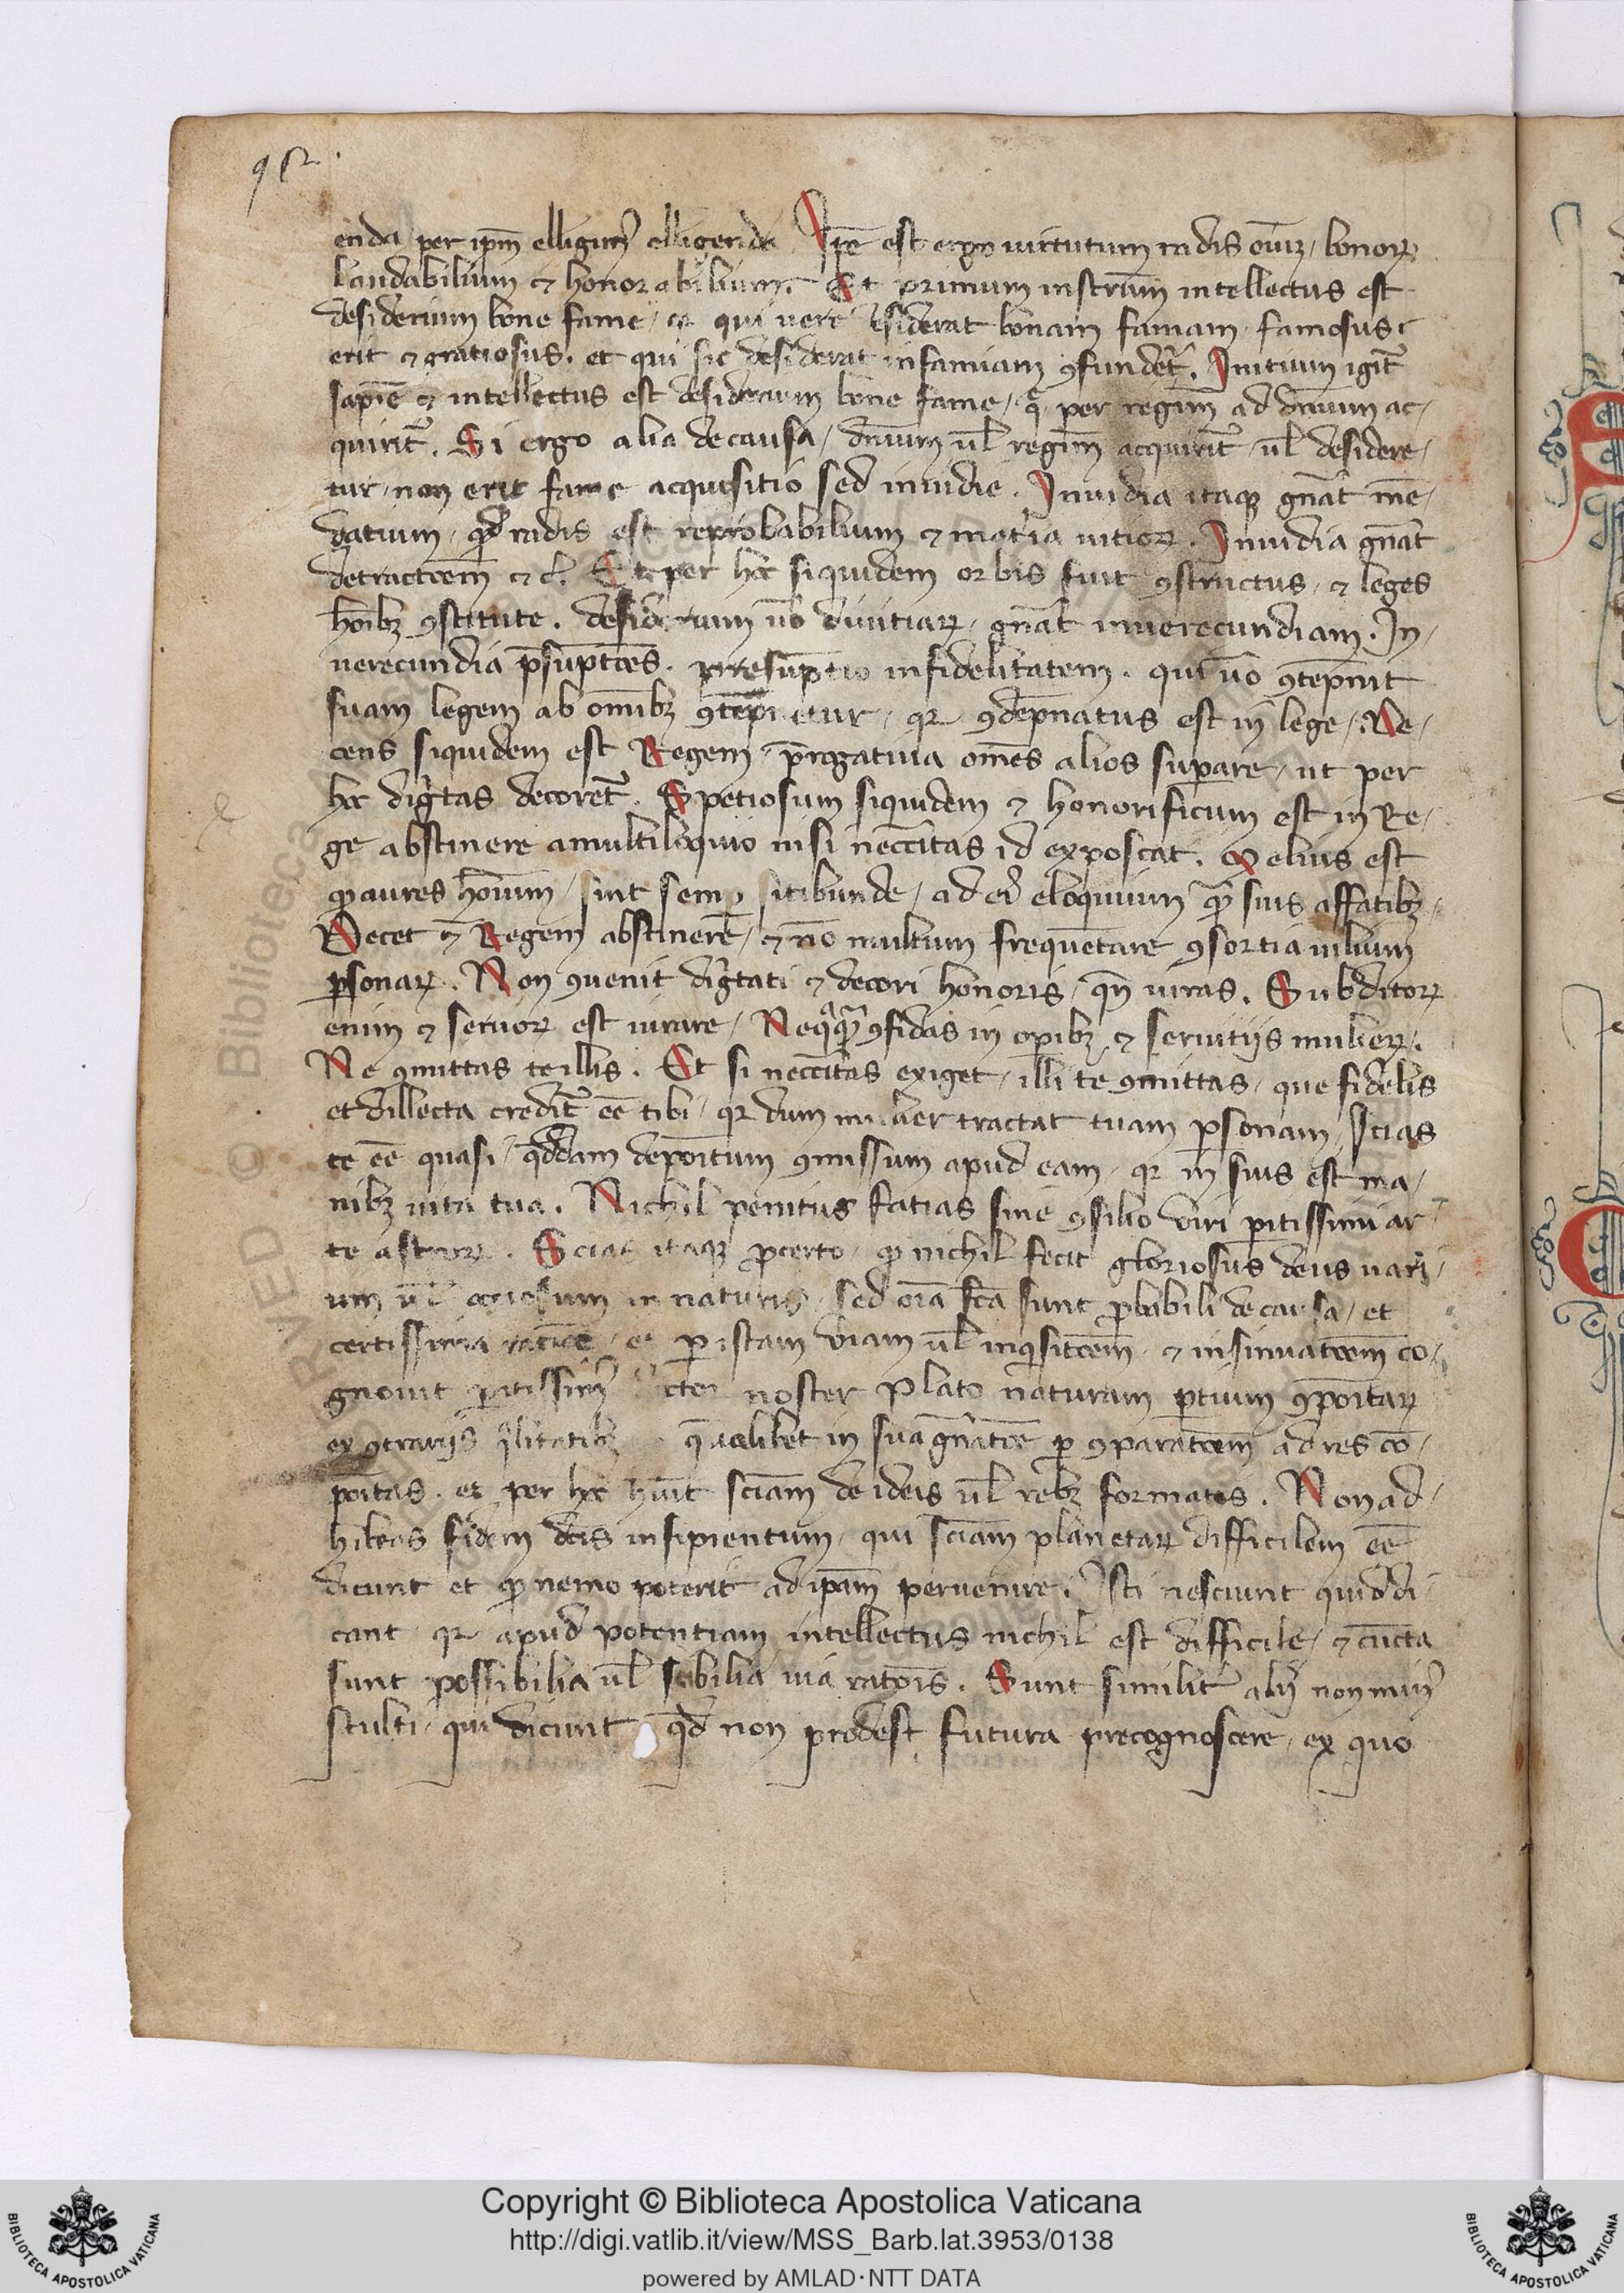 952.
enda per ip̄m elligim⁹ elligenda Ip̄e est ergo uirtutum radis oīuz, bonoꝝ
laudabilium ⁊ honorabilium. Et primum instrum̄ intellectus est
desiderium bone fame, qꝛ qui uere desiderat bonam famam, famosus
erit ⁊ gratiosus. et qui sic desiderat infamiam ꝯfundet᷑. Initium igit᷑
sapiē ⁊ intellectus est desiderium bone fame, q̄ per regim̄ ad dn̄ium ac,
quirit᷑. Si ergo alia de causa, dn̄ium ul̄ regim̄ acquirit᷑, ul̄ desidere,
tur, non erit fame acquisitio sed inuidie. Inuidia itaqꝫ gn̄at mē,
datium, qd̄ radis est reprobabilium ⁊ mat̄ia uitioꝝ. Inuidia gn̄at
detractōem ⁊ c̄. Et per hc̄ siquidem orbis fuit ꝯstructus, ⁊ leges
hoībꝫ ꝯstitute. desiderium uō diuitiaꝝ, gn̄at inuerecundiam. In,
uerecundia p̄sūptōes. presūptio infidelitatem. qui uō ꝯtēpnit
suam legem ab omībꝫ ꝯtēpnetur, qꝛ ꝯdēpnatus est in lege, De,
cens siquidem est Regem, p̄rogatiua om̄es alios superare, ut per
hc̄ dig̃tas decoret᷑. Spetiosum siquidem ⁊ honorificum est in Re,
ge abstinere a multiloquio nisi necc̄itas id exposcat. Melius est
qꝫ aures hoīum, sint semꝑ sitibunde, ad ei⁹ eloquium qꝫ suis affatibꝫ,
Decet ⁊ Regem abstinere, ⁊ nō multum frequētare ꝯsortia uilium
ꝑsonaꝝ. Non ꝯuenit dig̃tati ⁊ decori honoris, qn̄ iuras. Subditoꝝ
enim ⁊ seruoꝝ est iurare, Neqͣqͣꝫ ꝯfidas in oꝑibꝫ ⁊ seruitijs mulieꝝ.
Ne ꝯmittas te illis. Et si necc̄itas exiget, illi te ꝯmittas, que fidelis
et dillecta credit᷑ eē tibi, qꝛ dum mulier tractat tuam ꝑsonam, scias
te eē quasi, qd̄dam depoītum ꝯmissum apud eam, qꝛ in suis est ma,
nibꝫ uita tua. Nichil penitus fatias sine ꝯsilio uiri ꝑitissimi ar,
te astroꝝ. Scias itaqꝫ ꝓcerto, qꝫ nichil fecit gloriosus deus uari,
um ul̄ otiosum in naturis, sed oīa fc̄a sunt ꝓbabili de causa, et
certissima ratiōe, et ꝑ istam uiam ul̄ inqͥsitōem, ⁊ insinuatōem co,
gnouit ꝑitissim⁹ doctor noster Plato naturam ꝑtium ꝯpoītaꝝ
ex ꝯtrarijs qͣlitatibꝫ q̄ualibet in sua gn̄atōe ꝑ ꝯparatōem ad res cō,
poītas, et per hc̄ hūit sciam̄ de ideis ul̄ rebꝫ formatis. Non ad,
hibeas fidem dc̄is insipientum, qui sciam̄ planetaꝝ difficilem eē
dicunt et qꝫ nemo poterit ad ip̄am peruenire. Isti nesciunt quid di,
cant, qꝛ apud potentiam intellectus nichil est difficile, ⁊ cūcta
sunt possibilia ul̄ scibilia uia ratōis. Sunt similit᷑ alij non min⁹
stulti, qui dicunt qd̄ non prodest futura precognoscere, ex quo
Copyright © Biblioteca Apostolica Vaticana
http://digi.vatlib.it/view/MSS_Barb.lat.3953/0138
powered by AMLAD·NTT DATA
BIBLIOTECA APOSTOLICA VATICANA
BIBLIOTECA APOSTOLICA VATICANA